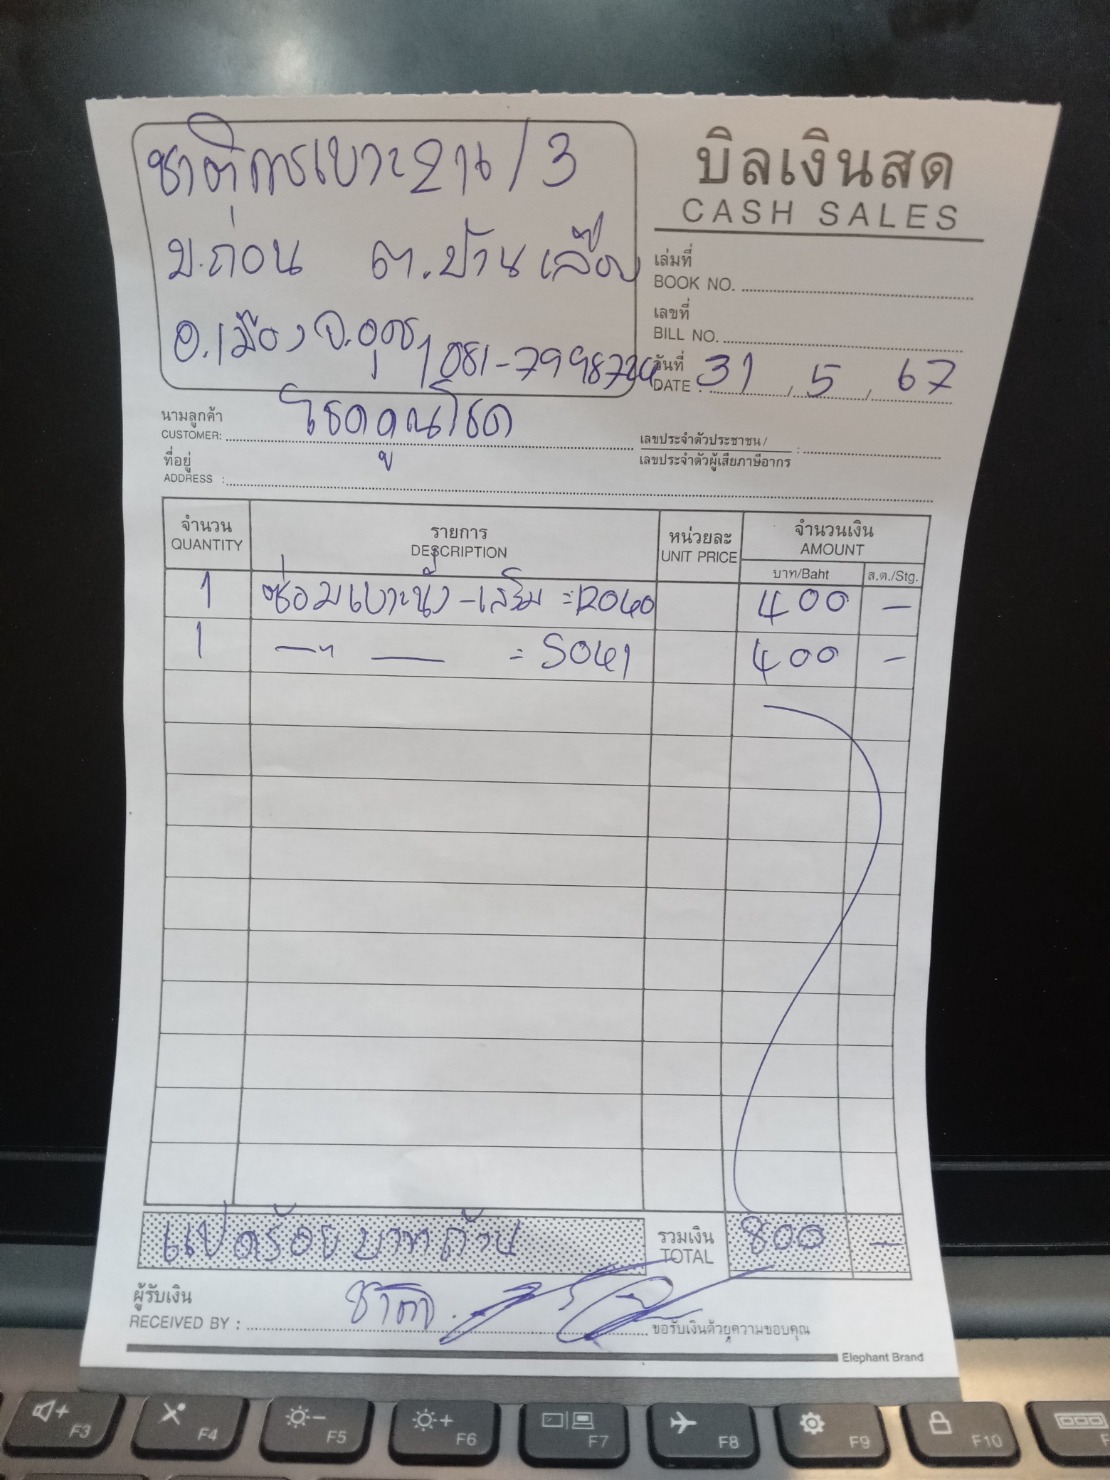 ชาติการเบาะ 214/3
บิลเงินสด
CASH SALES
บ.ถ่อน ต.บ้านเลื่อม
เล่มที่
BOOK NO.
เลขที่
BILL NO.
อ.เมือง จ.อุดร 081-79987
วันที่
DATE : 31 / 5 / 67
นามลูกค้า
CUSTOMER: โชคคูณโชค
เลขประจำตัวประชาชน/
เลขประจำตัวผู้เสียภาษีอากร :
ที่อยู่
ADDRESS :
จำนวน รายการ หน่วยละ จำนวนเงิน
QUANTITY DESCRIPTION UNIT PRICE AMOUNT
บาท/Baht ส.ต./Stg.
1 ซ่อมเบาะนั่ง-เสริม = R040 400 -
1 —"— = S041 400 -
แปดร้อยบาทถ้วน รวมเงิน 800 -
TOTAL
ผู้รับเงิน
RECEIVED BY : ชาติ ขอรับเงินด้วยความขอบคุณ
Elephant Brand
F3 F4 F5 F6 F7 F8 F9 F10